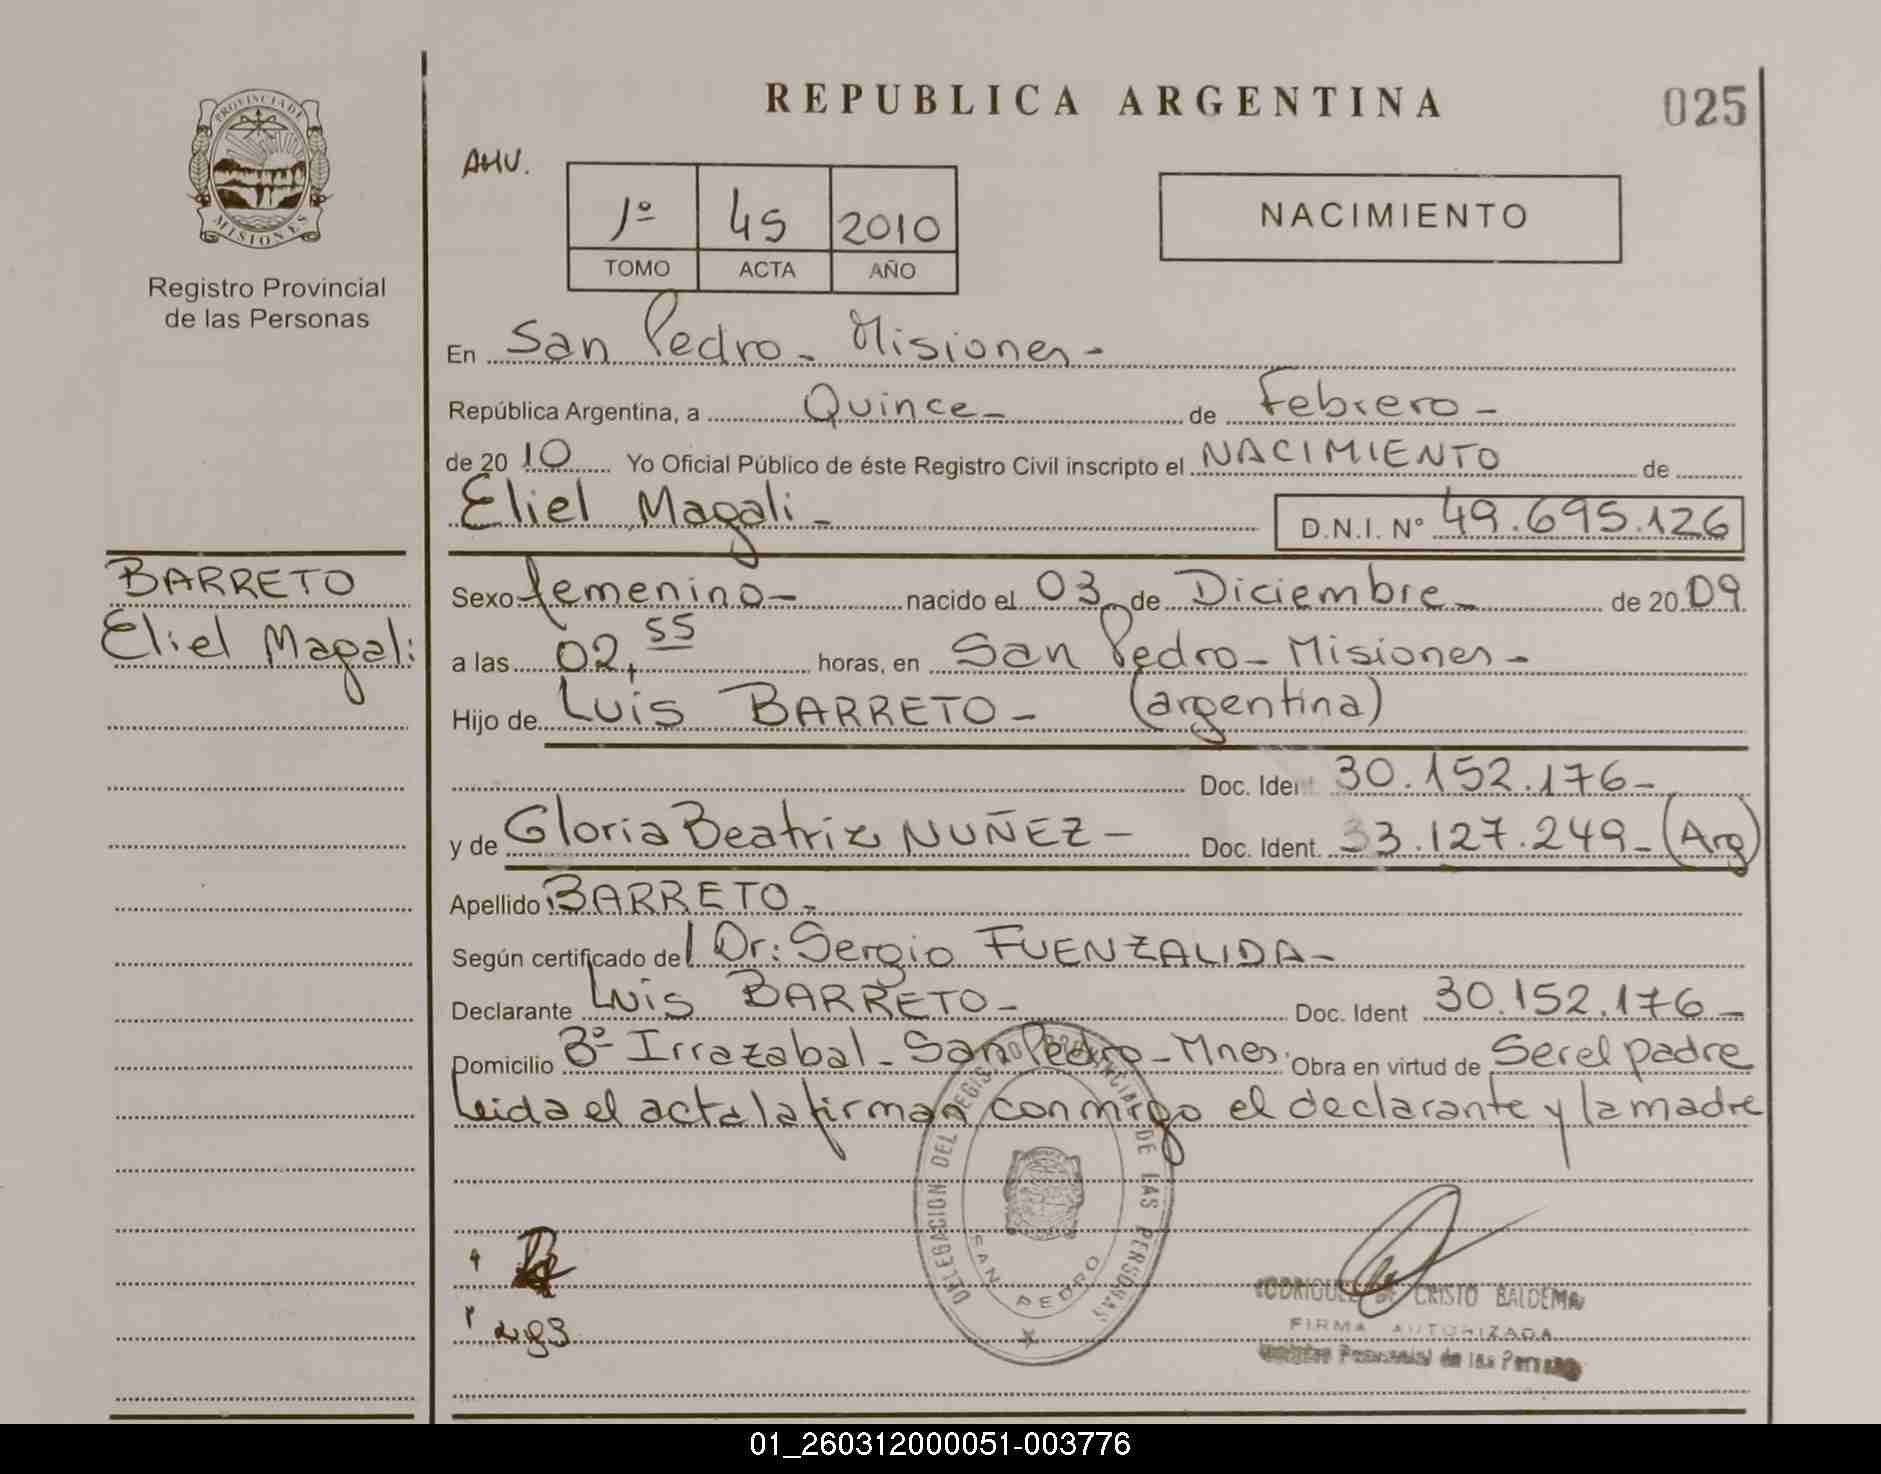 REPUBLICA ARGENTINA
025
PROVINCIA DE
MISIONES
Registro Provincial
de las Personas
AHU.
1º 45 2010
TOMO ACTA AÑO
NACIMIENTO
En San Pedro - Misiones -
República Argentina, a Quince - de Febrero -
de 2010 Yo Oficial Público de éste Registro Civil inscripto el NACIMIENTO de
Eliel Magali - D.N.I. Nº 49.695.126
BARRETO
Eliel Magali
Sexo femenino - nacido el 03 de Diciembre - de 2009
a las 02,55 horas, en San Pedro - Misiones -
Hijo de Luis BARRETO - (argentina)
Doc. Ident 30.152.176 -
y de Gloria Beatriz NUÑEZ - Doc. Ident. 33.127.249 - (Arg)
Apellido BARRETO -
Según certificado del Dr: Sergio FUENZALIDA -
Declarante Luis BARRETO - Doc. Ident 30.152.176 -
Domicilio Bº Irrazabal - San Pedro - Mnes. Obra en virtud de Ser el padre
Leida el acta la firman conmigo el declarante y la madre
DELEGACION DEL REGISTRO PROVINCIAL DE LAS PERSONAS
SAN PEDRO
RODRIGUEZ DE CRISTO BALDEMA
FIRMA AUTORIZADA
Registro Provincial de las Personas
01_260312000051-003776